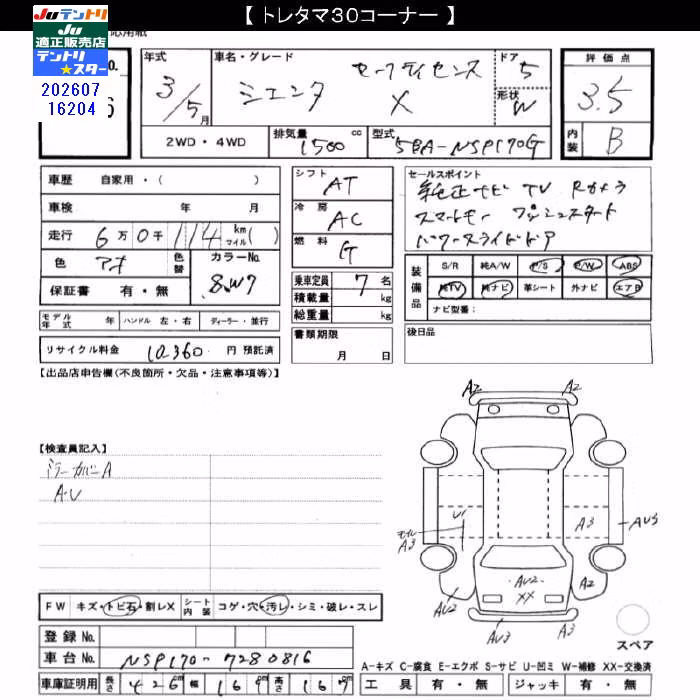 【 トレタマ30コーナー 】
Juテントリ
JU
適正販売店
テントリ
★スター
No.
202607
16204
年式
3/5月
車名・グレード
セーフティセンス
シエンタ X
ドア 5
形状 W
評価点
3.5
内装 B
2WD・4WD
排気量 1500 cc
型式 5BA-NSP170G
車歴 自家用・( )
車検 年 月
走行 6万0千114 km マイル( )
色 アオ
色替
カラーNo. 8W7
保証書 有・無
モデル年式 年 ハンドル 左・右 ディーラー・並行
リサイクル料金 10360 円 預託済
シフト AT
冷房 AC
燃料 G
乗車定員 7 名
積載量 kg
総重量 kg
書類期限
月 日
セールスポイント
純正ナビ TV Rカメラ
スマートキー プッシュスタート
パワースライドドア
装備品
S/R 純A/W P/S P/W ABS
純TV 純ナビ 革シート 外ナビ エアB
ナビ型番:
後日品
【出品店申告欄(不良箇所・欠品・注意事項等)】
【検査員記入】
ミラーカバーA
A・U
A2 A2
U1
モール
A3
A3
AU3
AU2
XX
AU2
A2
AU3
A3
スペア
FW キズ・トビ石・割レX
シート内装 コゲ・穴・汚レ・シミ・破レ・スレ
登録 No.
車台 No. NSP170-7280816
車庫証明用 長さ 426 cm 幅 169 cm 高さ 167 cm
A=キズ C=腐食 E=エクボ S=サビ U=凹ミ W=補修 XX=交換済
工具 有・無 ジャッキ 有・無